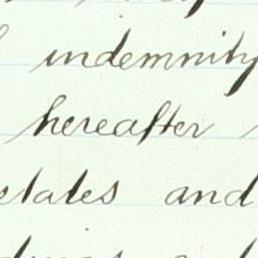 indemnity
hereafter
estates and